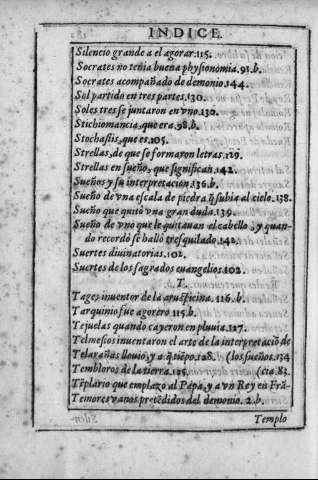 INDICE.
Silencio grande a el agorar.115.
Socrates no tenia buena physionomia.91.b.
Socrates acompañado de demonio.144.
Sol partido en tres partes.130.
Soles tres se juntaron en vno.130.
Stichiomancia, que era.98.b.
Stochastis, que es.105.
Strellas, de que se formaron letras.129.
Strellas en sueño, que significan.142.
Sueños y su interpretacion.136.b.
Sueño de vna escala de piedra q̃ subia al cielo.138.
Sueño que quitò vna gran duda.139.
Sueño de vno que le quitauan el cabello, y quan-
do recordò se hallò tresquilado.142.
Suertes diuinatorias.102.
Suertes de los sagrados euangelios.102.
T.
Tages inuentor de la aruspicina.116.b.
Tarquinio fue agorero 115.b.
Tejuelas quando cayeron en pluuia.127.
Telmesios inuentaron el arte de la interpretaciõ de
Telarañas llouio, y a q̃ tiẽpo.128. (los sueños.134
Temblores de la tierra.125. (cia.83.
Tẽplario que emplazo al Papa, y a vn Rey en Frã-
Temores vanos pretẽdidos del demonio.2.b.
Templo